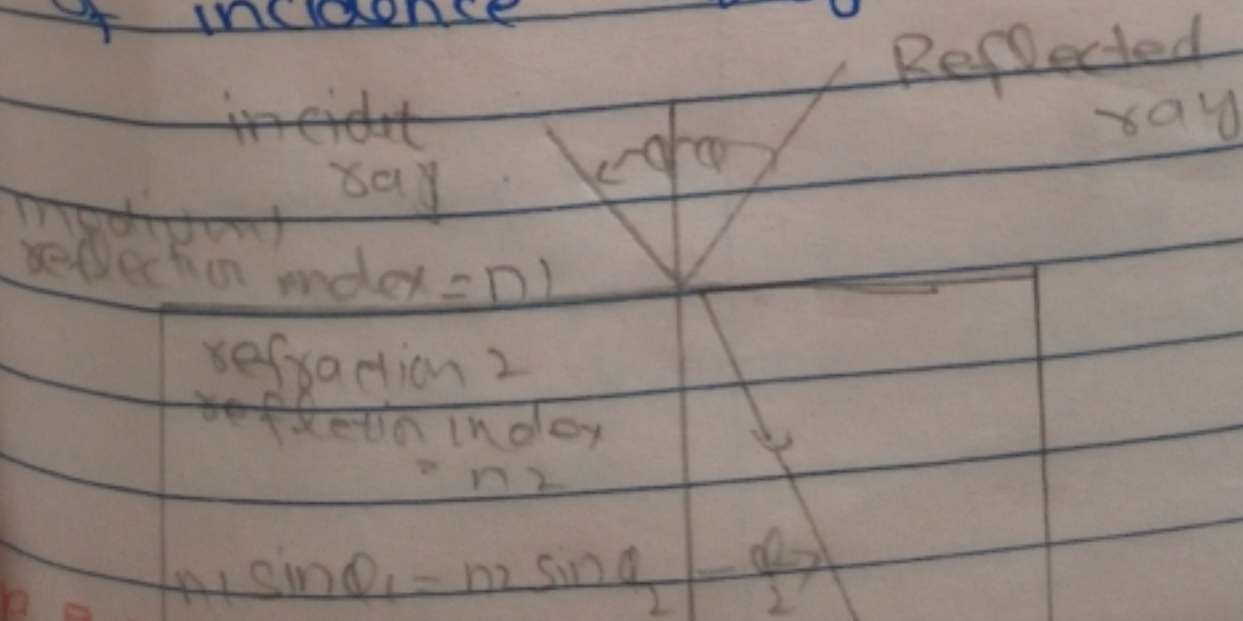 of incidence
Reflected
ray
incidet
ray
medium 1
reflection index = n1
refraction 2
reflectin index
= n2
n1 sinθ1 = n2 sinθ2
θ2